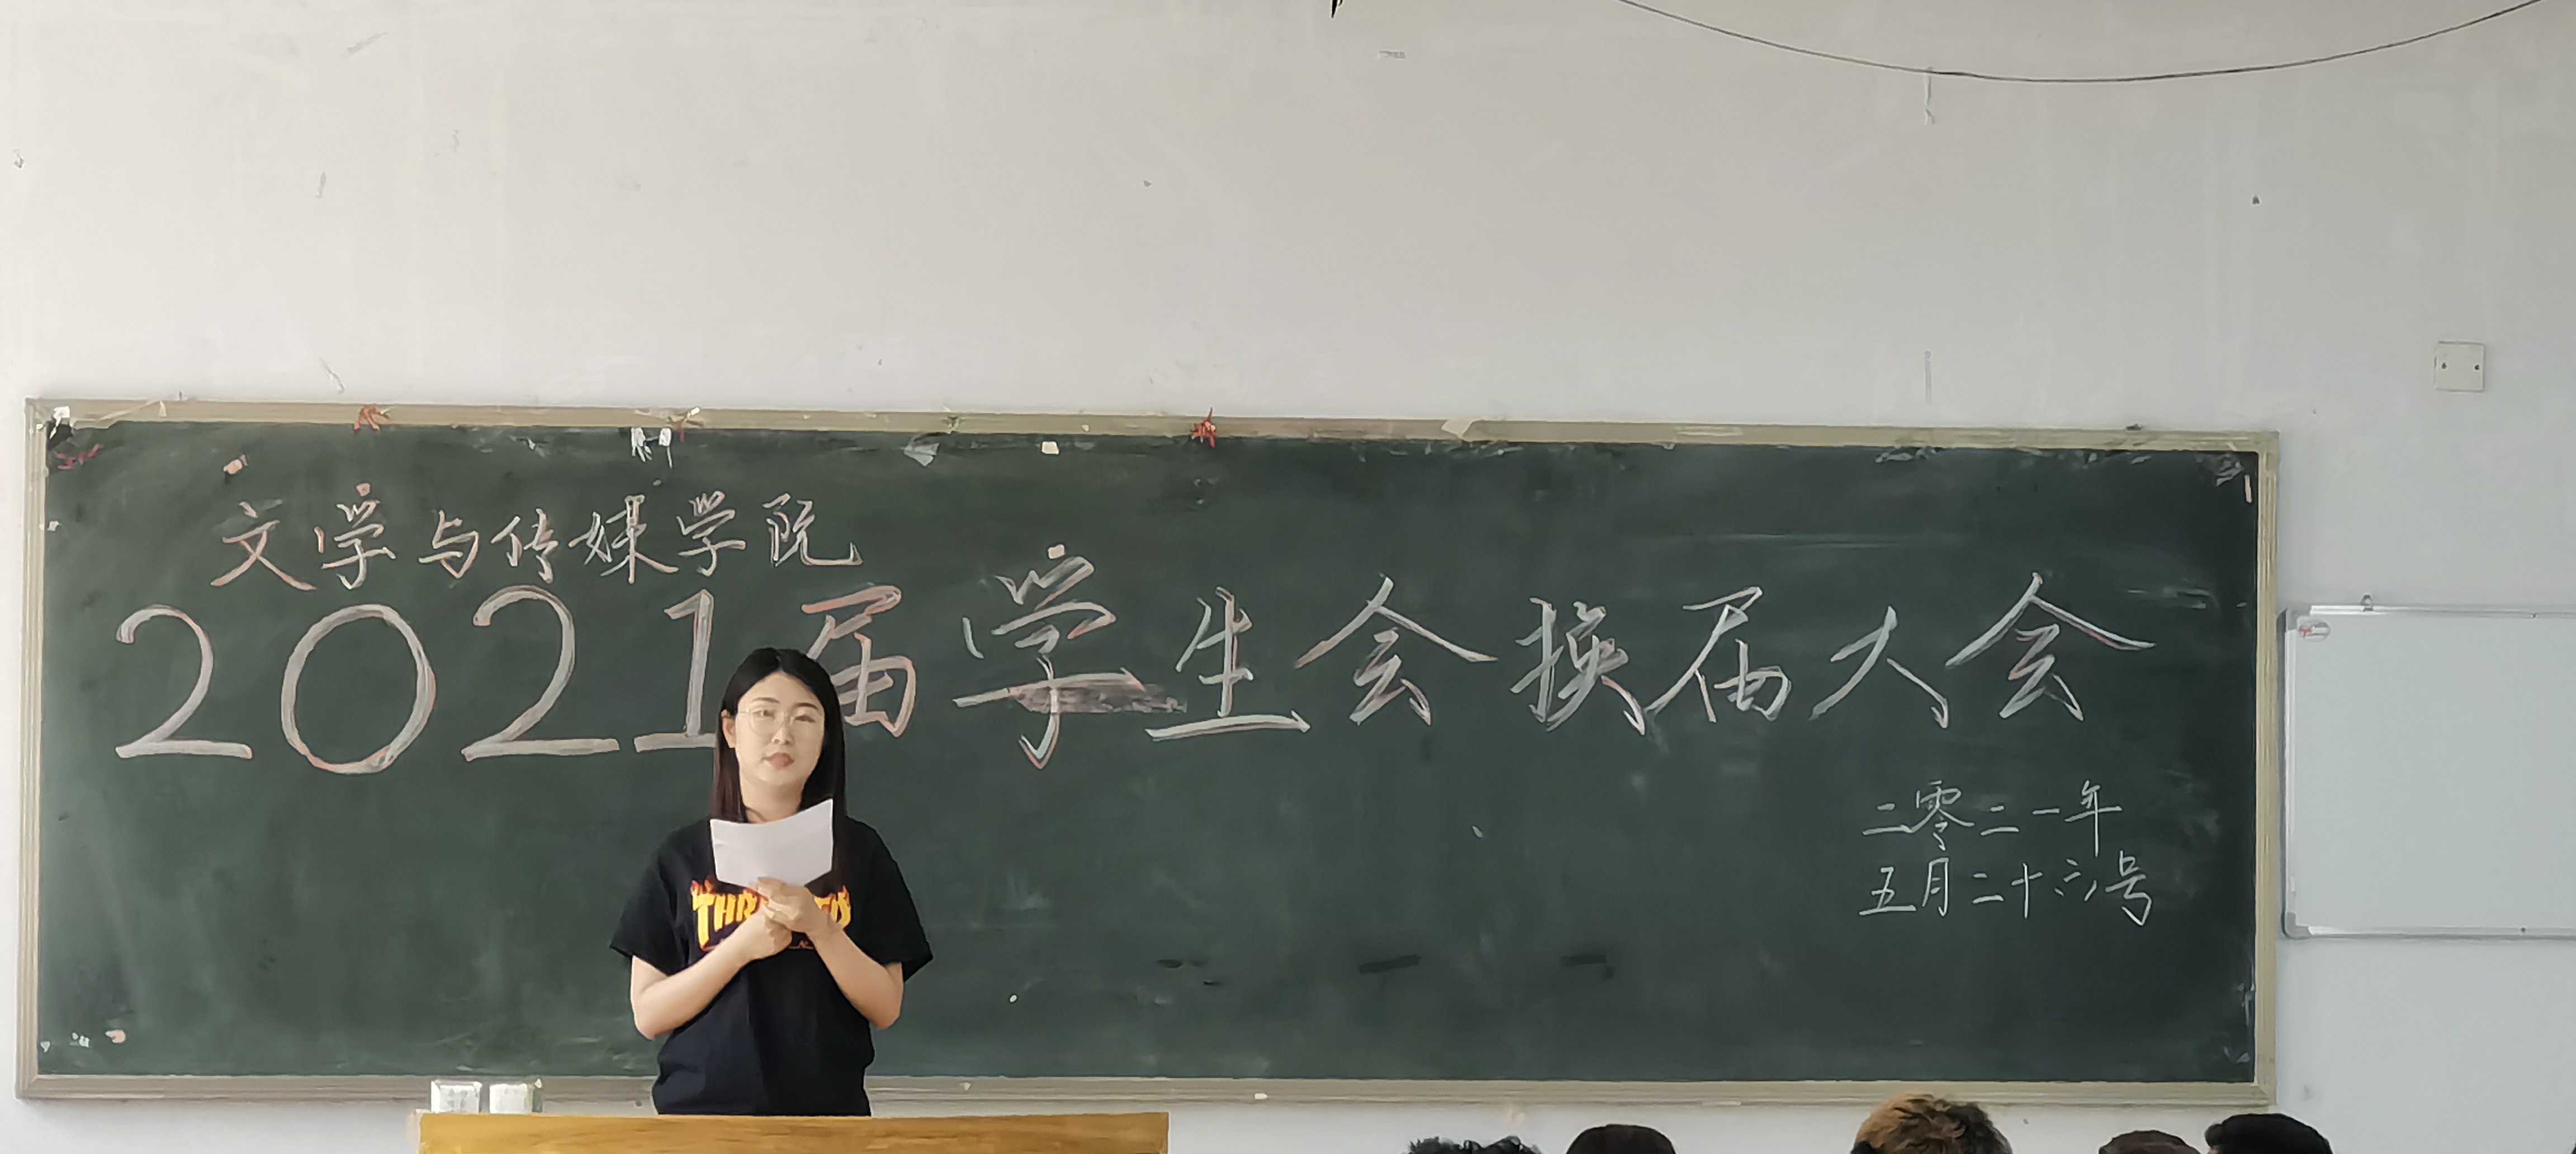 文学与传媒学院
2021届学生会换届大会
二零二一年
五月二十六号